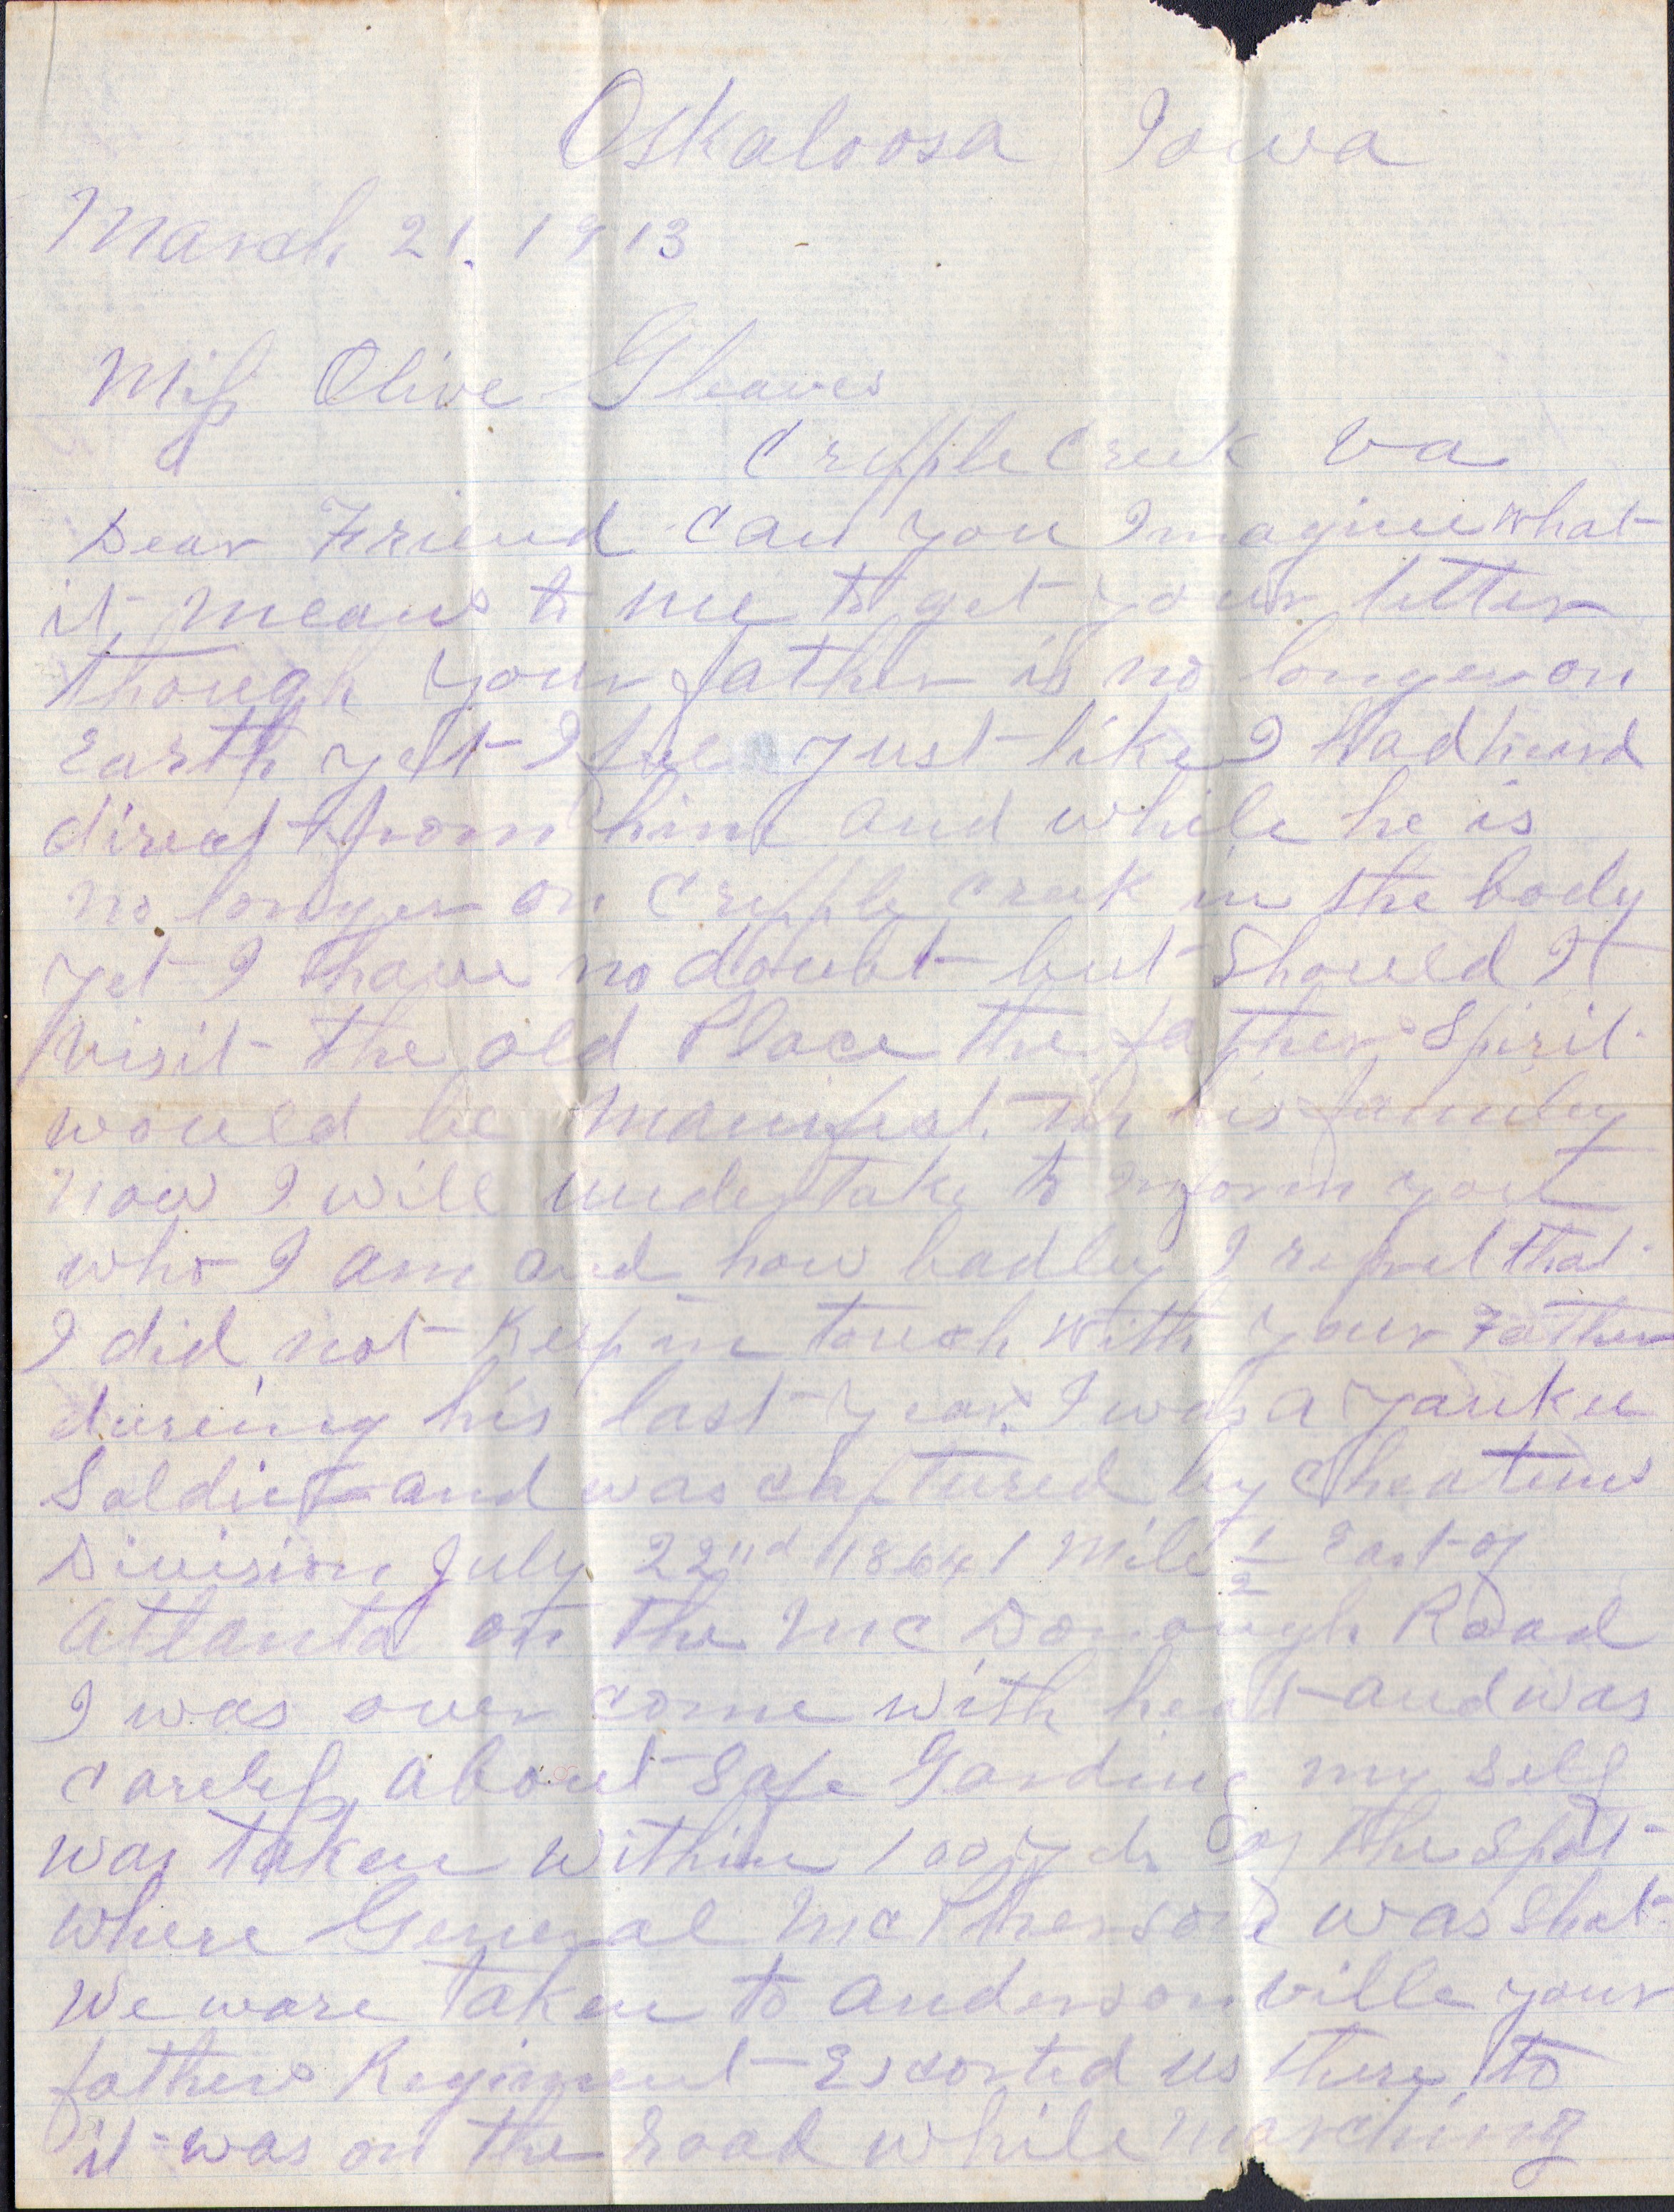 Oskaloosa Iowa
March 21. 1913
Miss Olive Gleaves
Cripple Creek Va
Dear Friend can you Imagine what
it means to me to get your letter
though your father is no longer on
Earth yet I feel just like I had heard
direct from him and while he is
no longer on Cripple creek in the body
yet I have no doubt but should I
visit the old Place the fathers Spirit
would be manifest in his family
now I will undertake to inform you
who I am and how badly I regret that
I did not keep in touch with your Father
dureing his last years. I was a yankee
Soldier and was captured by Cheatems
Division July 22nd 1864 1 mile 1/2 East of
Atlanta on the McDonough Road
I was over come with heat and was
careless about safe Garding my self
was taken within 100 yds of the spot
where General McPherson was shot
We ware taken to Andersonville your
fathers Regiment Escorted us there to
it was on the road while marching